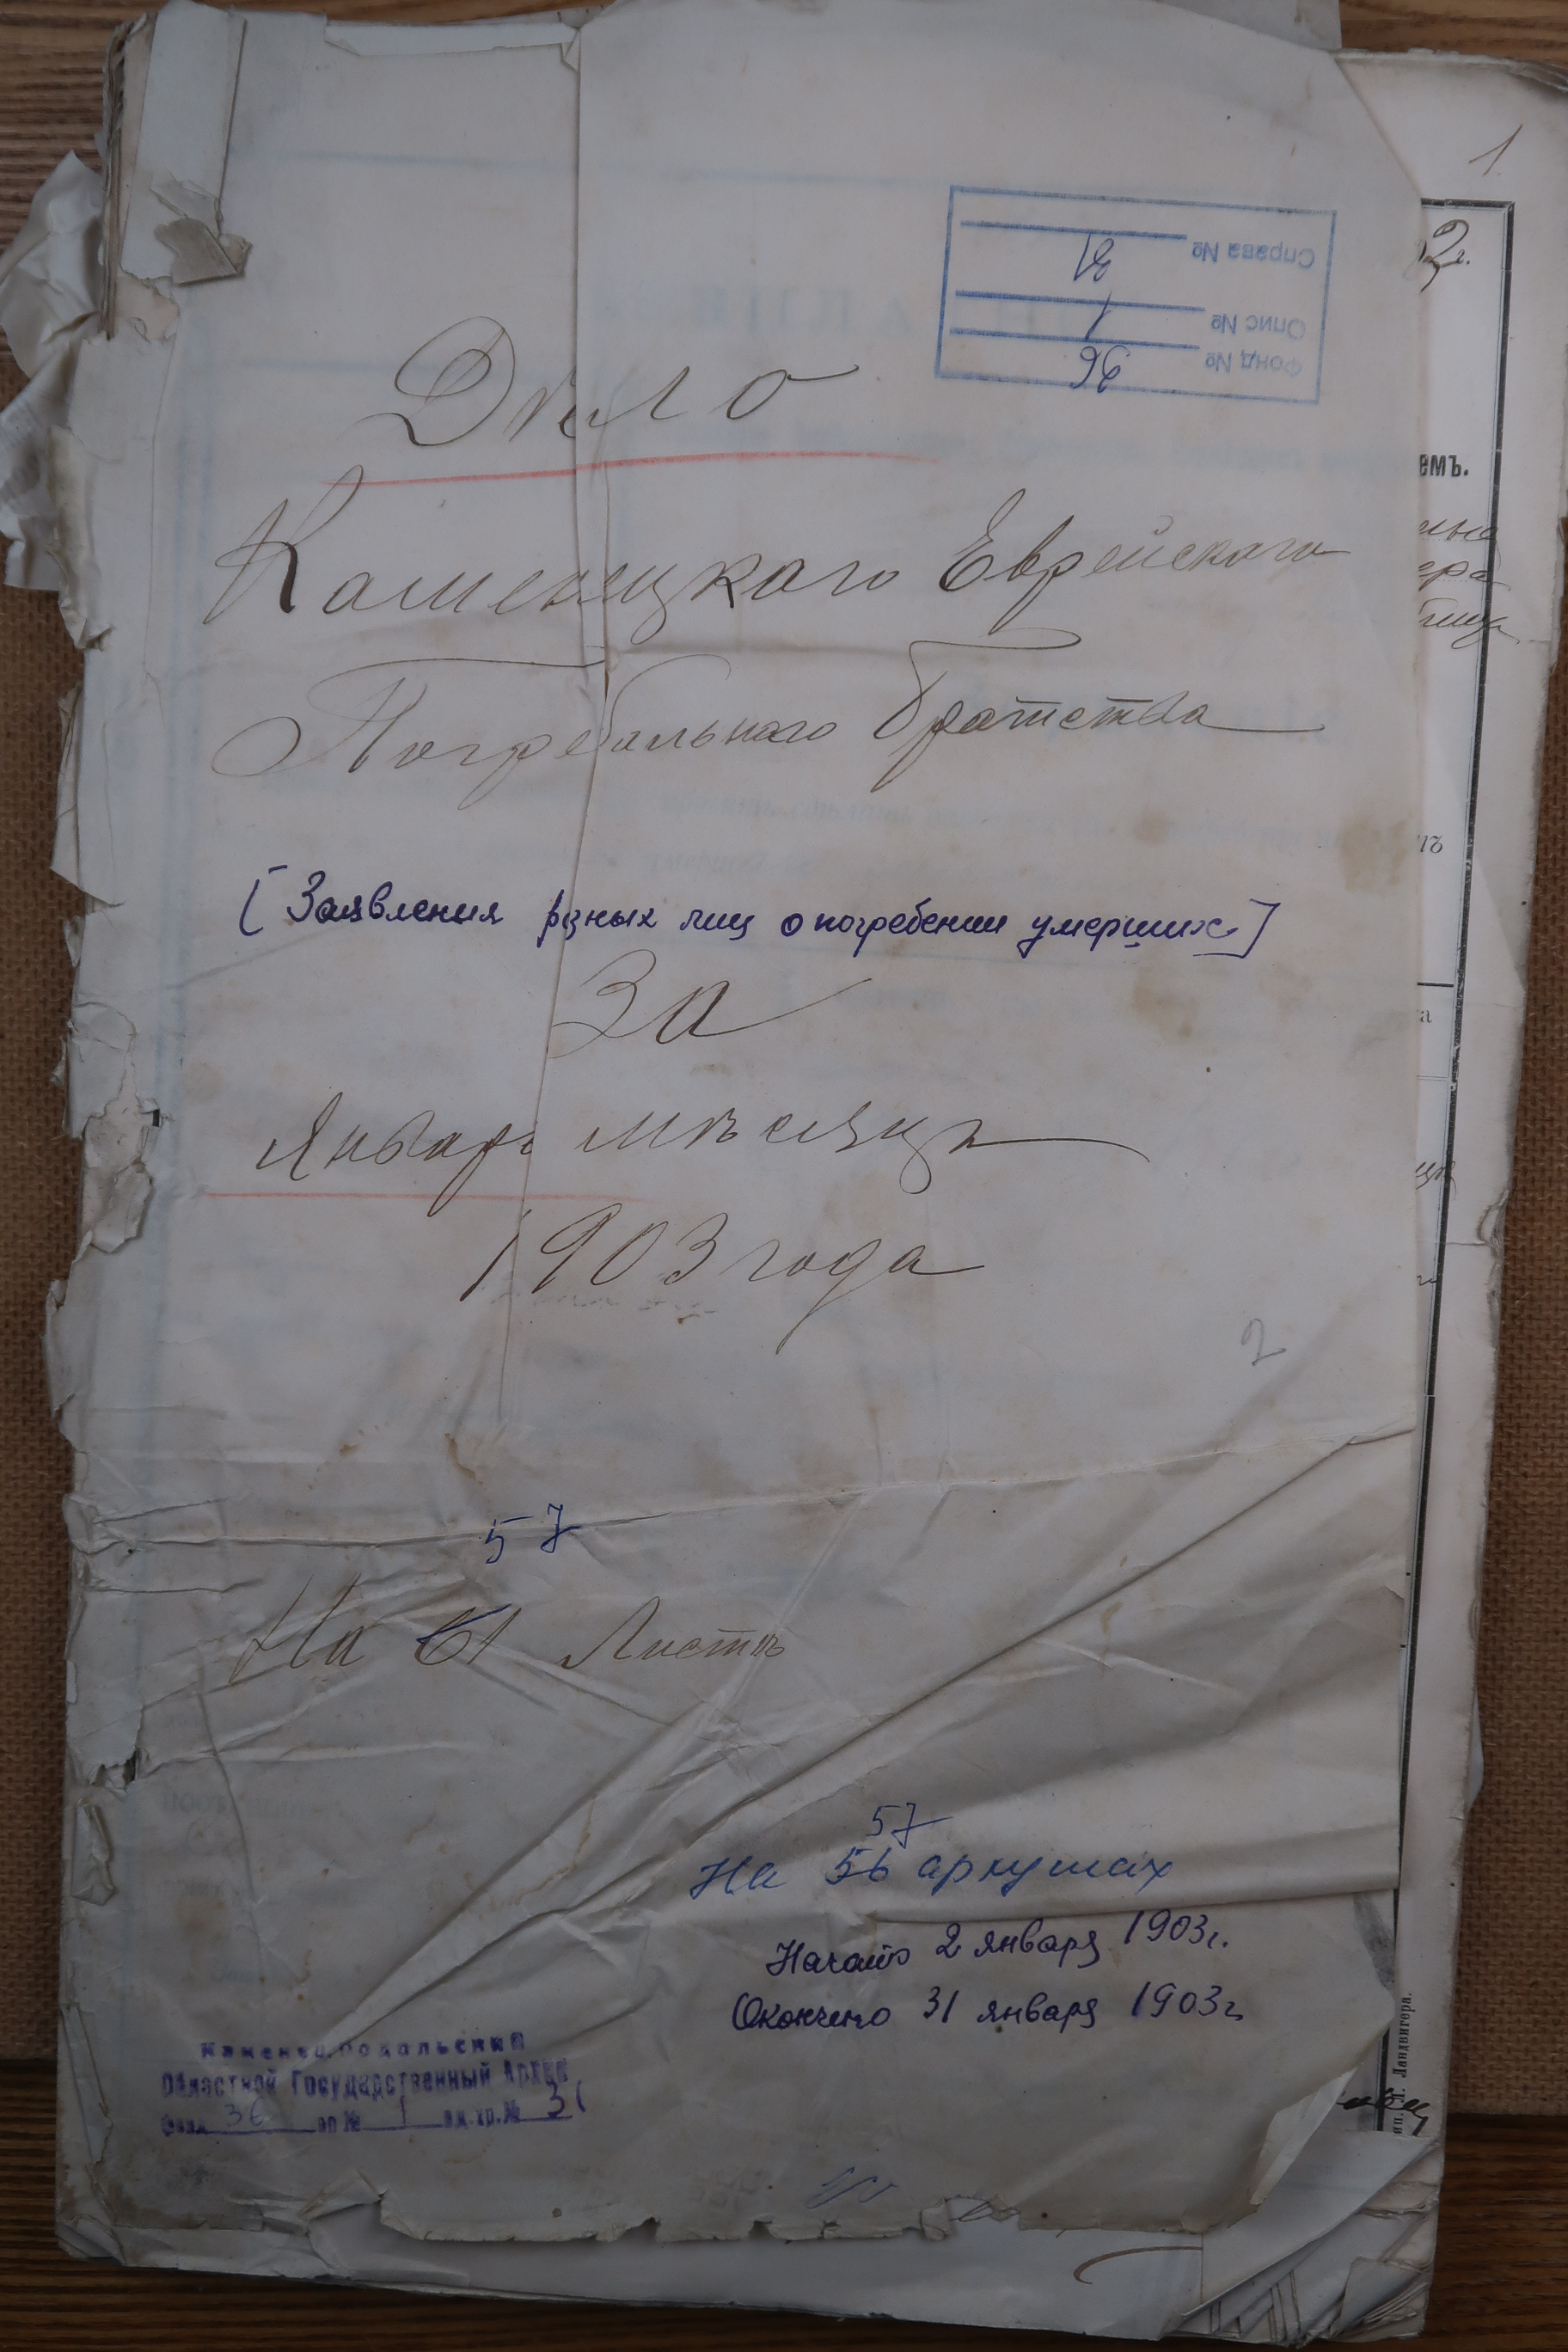 1
2г.
емъ.
Справа № 31
Опис № 1
Фонд № 36
Дѣло
Каменецкаго Еврейскаго
Погребальнаго Братства
[Заявления разных лиц о погребении умерших]
За
Январь мѣсяцъ
1903 года
2
57
На 61 Листѣ
57
На 56 аркушах
Начато 2 января 1903 г.
Окончено 31 января 1903 г.
Каменец-Подольский
Областной Государственный Архив
Фонд 36 оп № 1 ед.хр.№ 31
Л. Ландвигера.